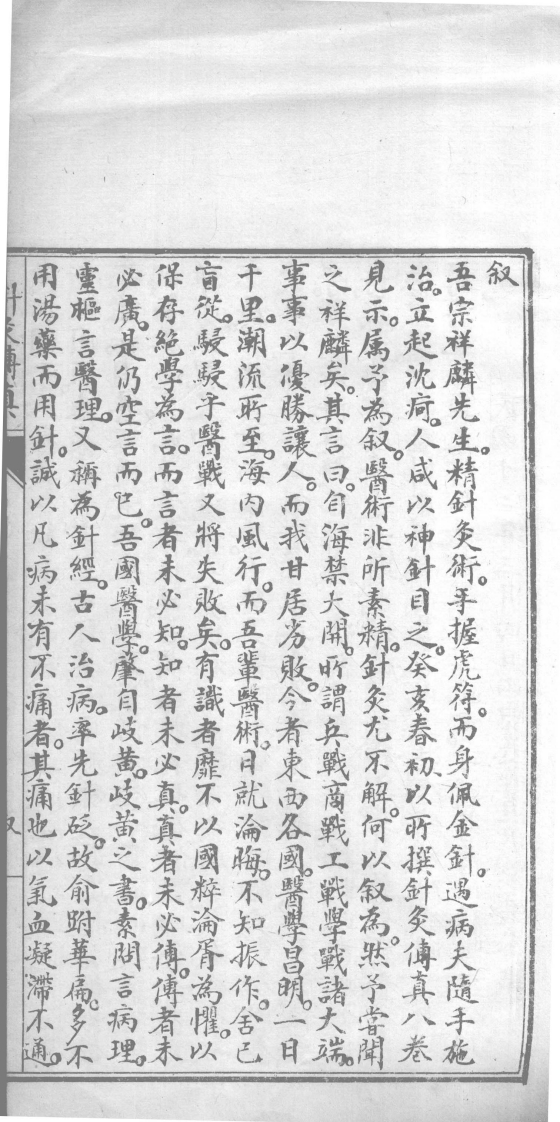 叙
吾宗祥麟先生。精針灸術。手握虎符。而身佩金針。遇病夫隨手施
治。立起沈疴。人咸以神針目之。癸亥春初、以所撰針灸傳真八卷
見示。属予為叙。醫術非所素精。針灸尤不解。何以叙為。然予嘗聞
之祥麟矣。其言曰。自海禁大開。所謂兵戰商戰工戰學戰諸大端。
事事以優勝讓人。而我甘居劣敗。今者東西各國。醫學昌明。一日
千里。潮流所至。海內風行。而吾輩醫術。日就淪晦。不知振作。舍己
盲從。駸駸乎醫戰又將失敗矣。有識者靡不以國粹淪胥為懼。以
保存絕學為言。而言者未必知。知者未必真。真者未必傳。傳者未
必廣。是仍空言而已。吾國醫學。肇自岐黃。岐黃之書。素問言病理。
靈樞言醫理。又稱為針經。古人治病。率先針砭。故俞跗華扁。多不
用湯藥而用針。誠以凡病未有不痛者。其痛也以氣血凝滯不通。
針灸傳真
叙